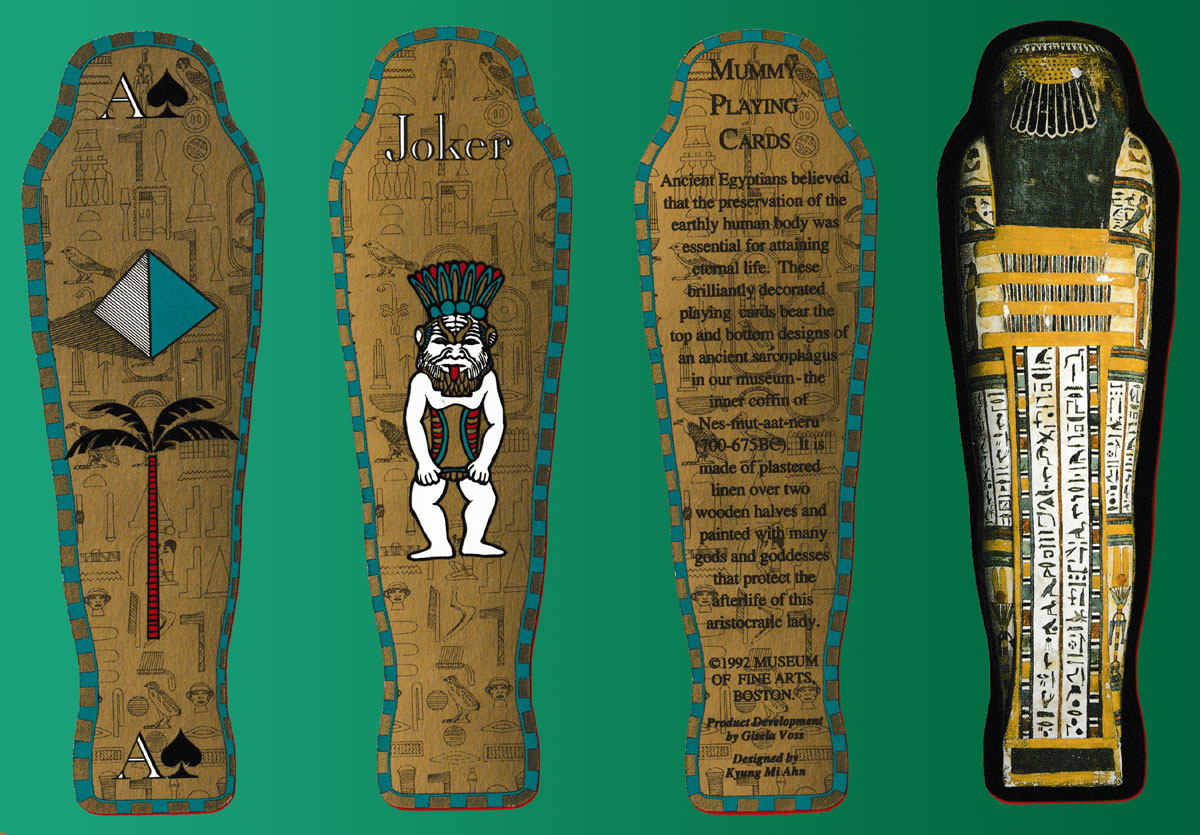 A♠
A♠
Joker
MUMMY
PLAYING
CARDS
Ancient Egyptians believed
that the preservation of the
earthly human body was
essential for attaining
eternal life. These
brilliantly decorated
playing cards bear the
top and bottom designs of
an ancient sarcophagus
in our museum-the
inner coffin of
Nes-mut-aat-neru
(700-675BC). It is
made of plastered
linen over two
wooden halves and
painted with many
gods and goddesses
that protect the
afterlife of this
aristocratic lady.
©1992 MUSEUM
OF FINE ARTS,
BOSTON.
Product Development
by Gisela Voss
Designed by
Kyung Mi Ahn